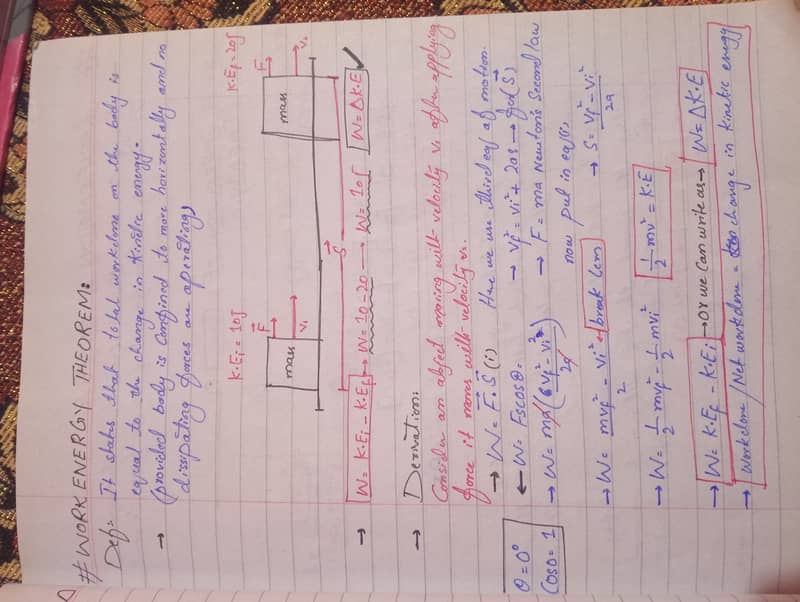 # WORK ENERGY THEOREM:
Def:- It states that total workdone on the body is
equal to the change in kinetic energy.
→ (provided body is confined to move horizontally and no
dissipating forces are operating)
K.Ei = 10J
K.Ef = 20J
F
F
man
man
Vi
S
→ W = K.Ei - K.Ef → W = 10-20 → W = 10J W = ΔK.E
→ Derivation:
Consider an object moving with velocity vi after applying
force it moves with velocity
→ W = F.S (i) Here we use third eq of motion.
← W = FScosθ. → Vf² = Vi² + 2aS → for (S)
θ = 0°
Cosθ = 1
→ F = ma Newton's Second law
now put in eq (i),
→ W = ma (Vf² - Vi² / 2a) → S = Vf² - Vi² / 2a
→ W = mVf² - Vi² / 2 break Lcm
→ W = 1/2 mVf² - 1/2 mVi² 1/2 mv² = K.E
→ W = K.Ef - K.Ei → or we can write as → W = ΔK.E
→ Workdone / Net workdone = change in kinetic energy